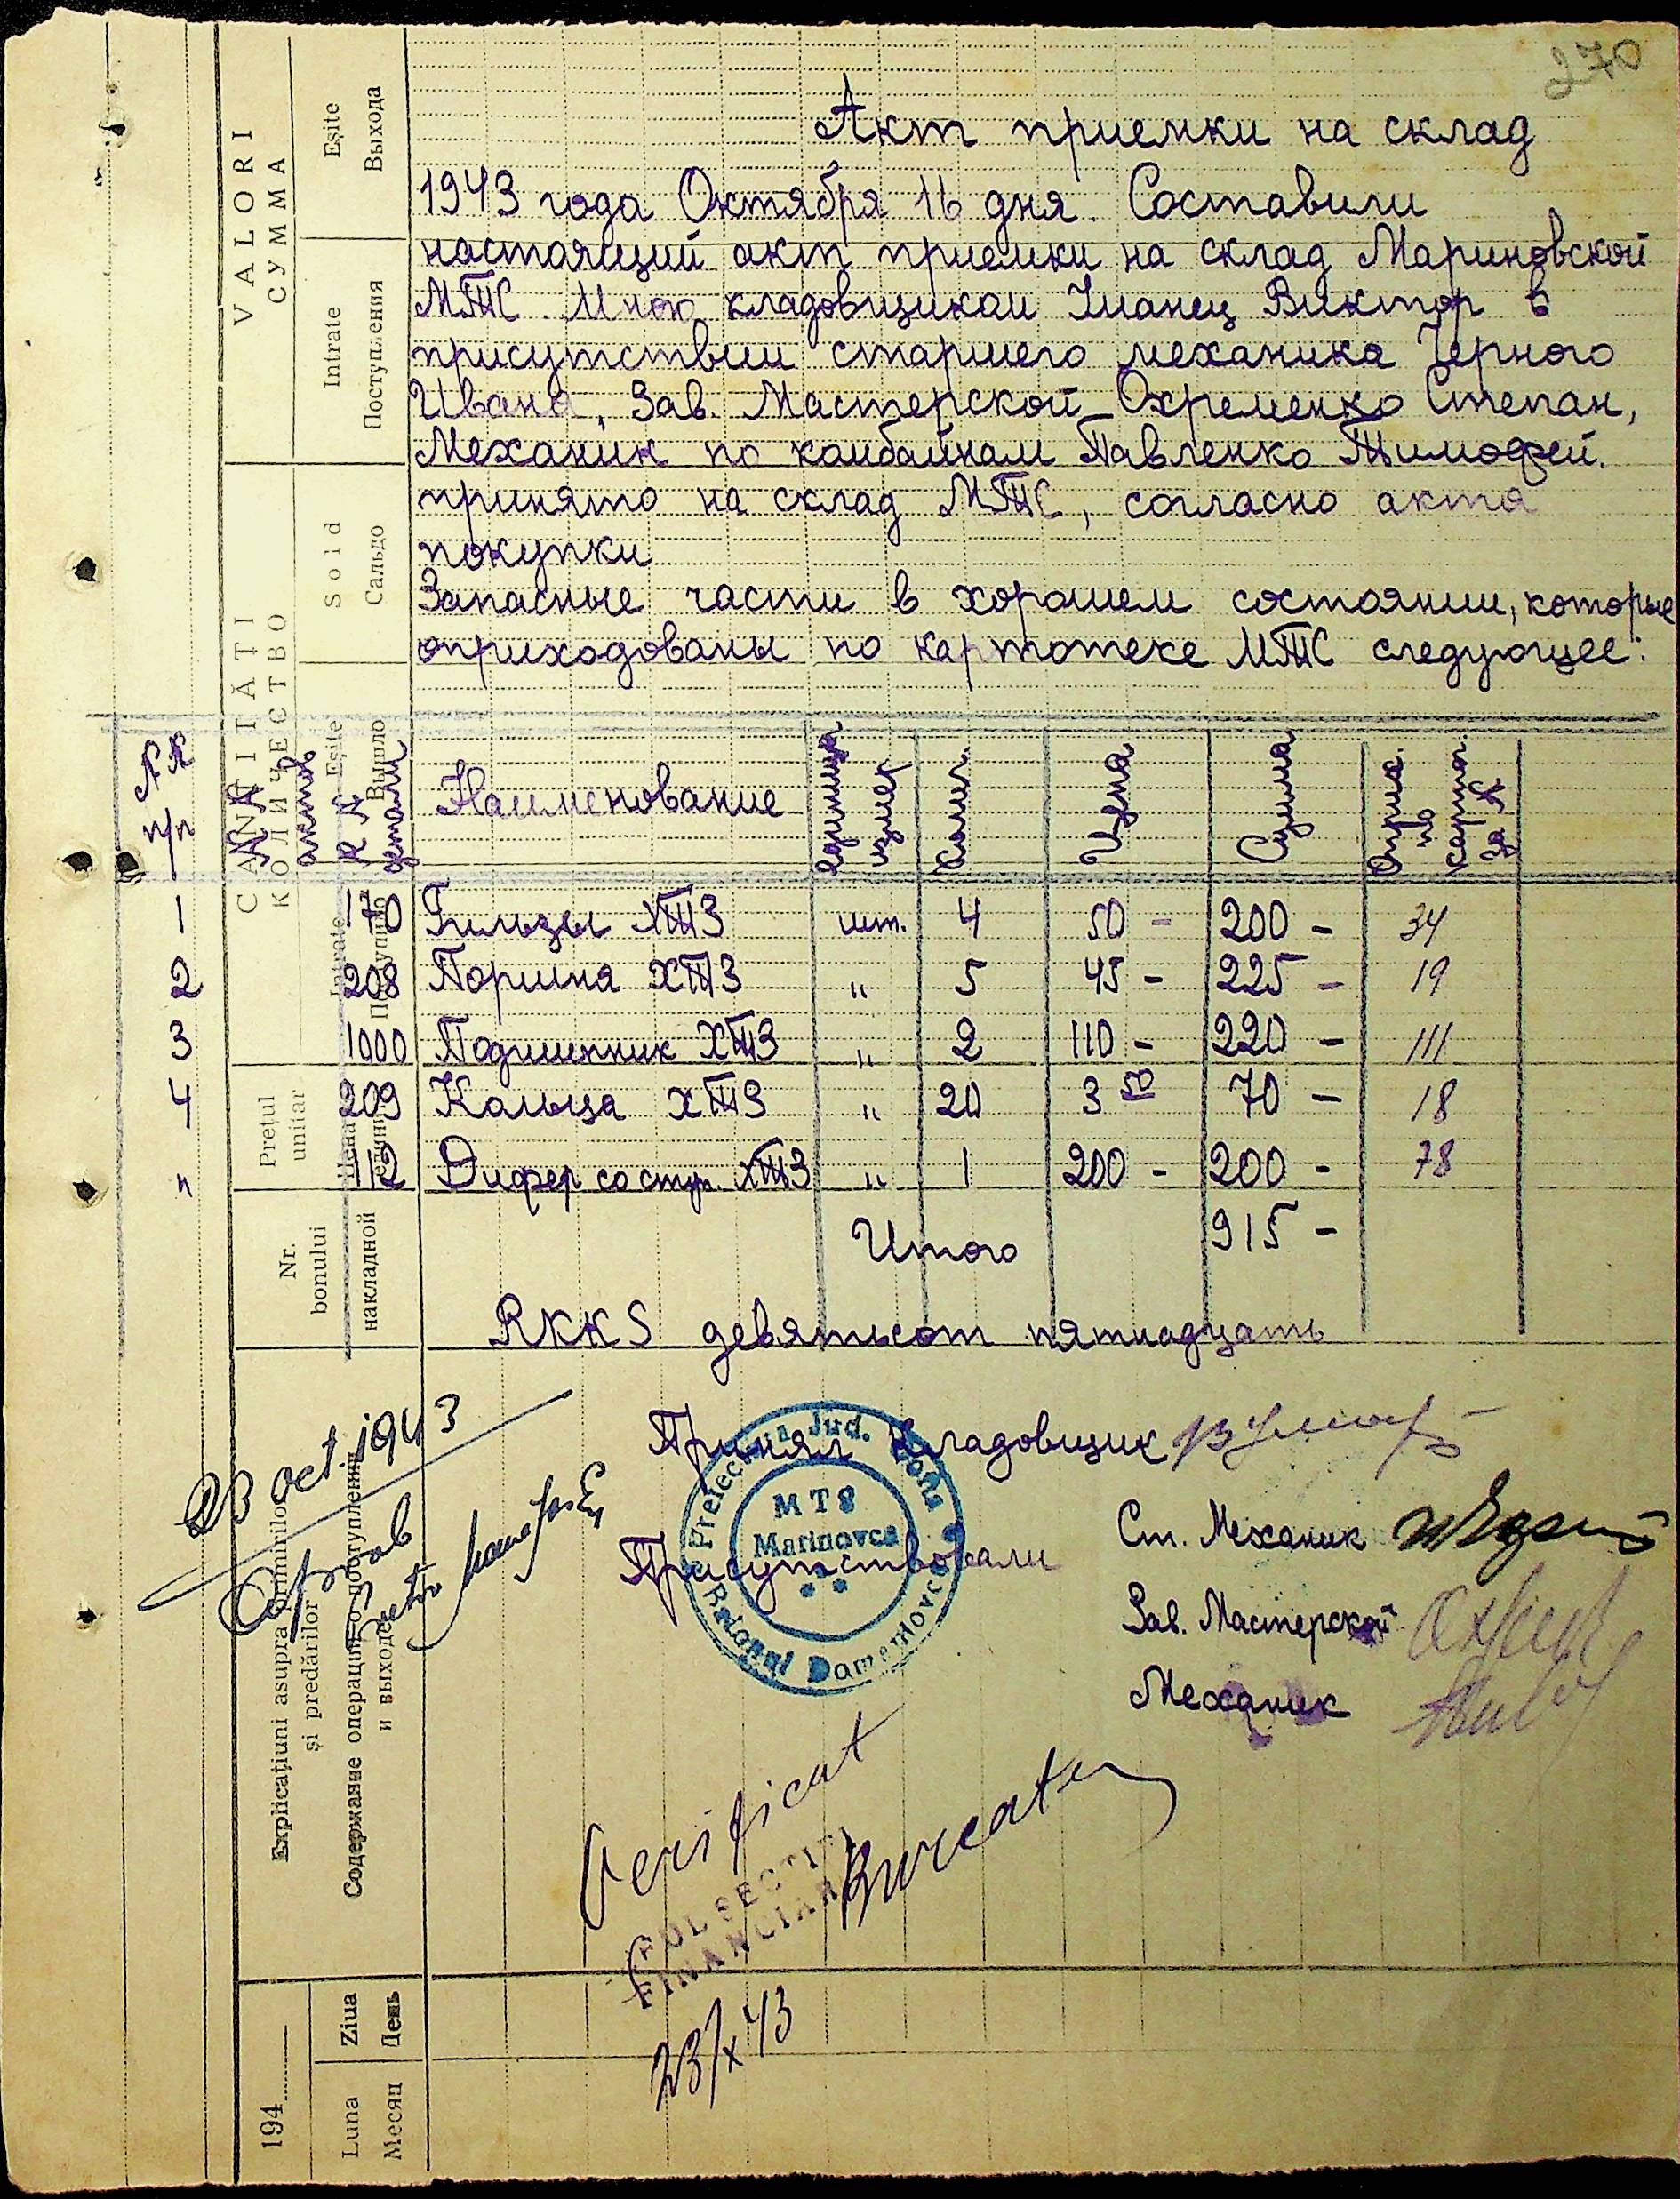 270
Акт приемки на склад
1943 года Октября 16 дня. Составили
настоящий акт приемки на склад Мариновской
МТС. Мною кладовщиком Уманец Виктор в
присутствии старшего механика Черного
Ивана, Зав. Мастерской Охременко Степан,
Механик по комбайнам Павленко Тимофей.
принято на склад МТС, согласно акта
покупки
Запасные части в хорошем состоянии, которые
оприходованы по картотеке МТС следующее:
№№ п/п №№ актов №№ детали Наименование Единица измер Колич. Цена Сумма Оприх. по картот. за №
1 170 Гильзы ХТЗ шт. 4 50 - 200 - 34
2 208 Поршня ХТЗ " 5 45 - 225 - 19
3 1000 Подшипник ХТЗ " 2 110 - 220 - 111
4 209 Кольца ХТЗ " 20 3 50 70 - 18
" 112 Дифер со ступ. ХТЗ " 1 200 - 200 - 78
Итого 915 -
RKKS девятьсот пятнадцать
Принял Кладовщик
Присутствовали Ст. Механик
Зав. Мастерской
Механик
23 oct. 1943
Prefectura Jud.
MTS
Marinovca
Raionul
Verificat
SECTIEI
FINANCIAR
23/X 43
VALORI
СУММА
Eșite
Выхода
Intrate
Поступления
CANTITĂȚI
КОЛИЧЕСТВО
Sold
Сальдо
Eșite
Вышло
Intrate
Поступило
Prețul
unitar
Цена
единицы
Nr.
bonului
№
накладной
Explicațiuni asupra primirilor
și predărilor
Содержание операций о поступлении
и выходе
194
Ziua
День
Luna
Месяц